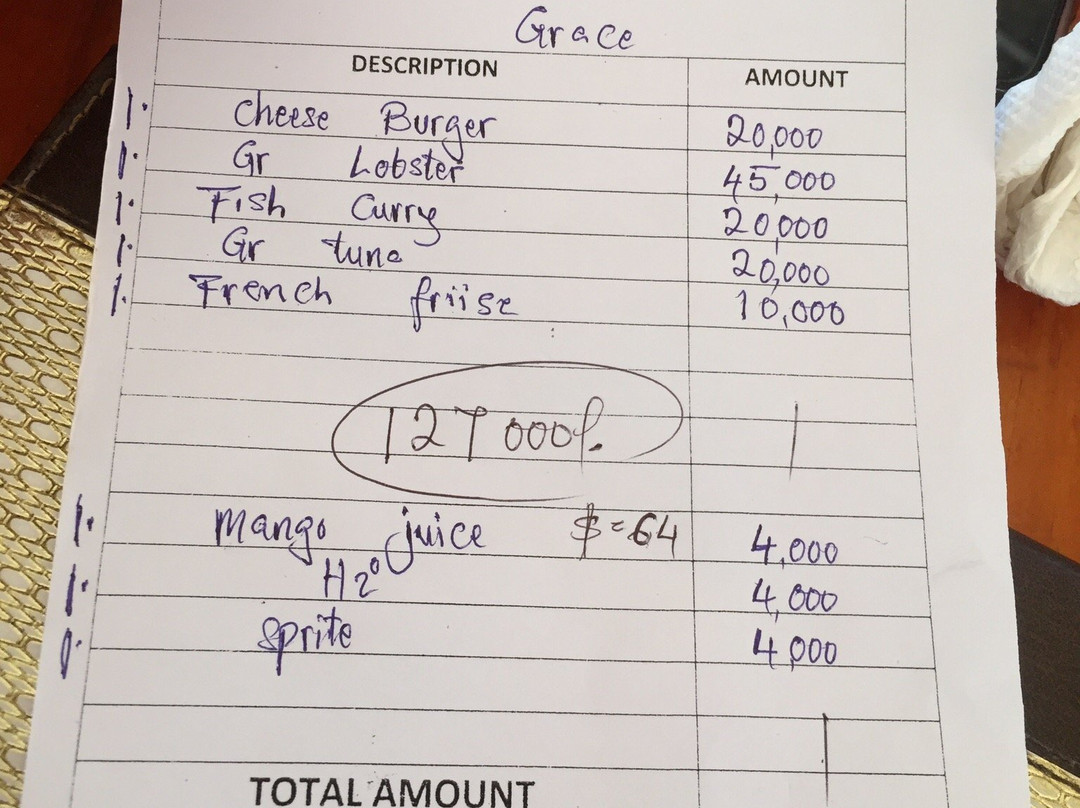 Grace
DESCRIPTION AMOUNT
1. Cheese Burger 20,000
1. Gr Lobster 45,000
1. Fish Curry 20,000
1. Gr tuna 20,000
1. French friise 10,000
127 000/.
1. Mango juice $=64 4,000
1. H2O 4,000
1. Sprite 4,000
TOTAL AMOUNT